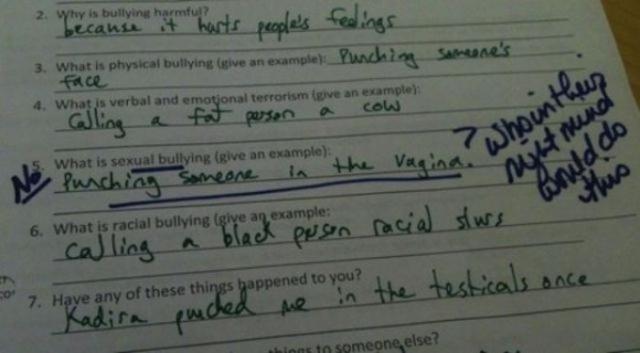 2. Why is bullying harmful?
because it hurts people's feelings
3. What is physical bullying (give an example): Punching someone's
face
4. What is verbal and emotional terrorism (give an example):
Calling a fat person a cow
No 5. What is sexual bullying (give an example):
Punching someone in the vagina. ? Who in their
right mind
would do
this
6. What is racial bullying (give an example:
calling a black person racial slurs
7. Have any of these things happened to you?
Kadira puched me in the testicals once
things to someone else?